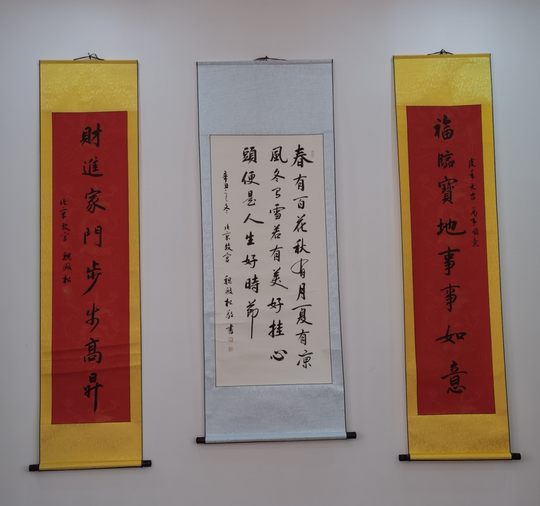 福臨寶地事事如意
春有百花秋有月夏有凉
風冬有雪若有美好挂心
頭便是人生好時節
辛丑之冬 北京故宫 魏殿松敬書
財進家門步步高昇
北京故宫 魏殿松